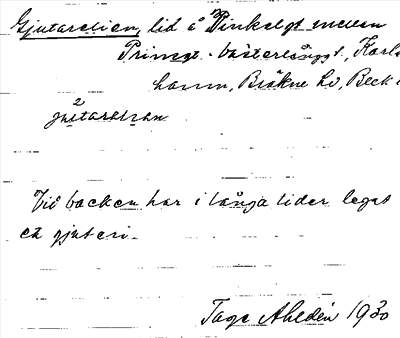 Gjutareliden, lid å Vinkelgt mellan
Prinsgt - Västerlångt., Karls-
hamn, Bräkne hd, Beck.
Vid backen har i långa tider legat
ett gjuteri.
Tage Ahldén 1930